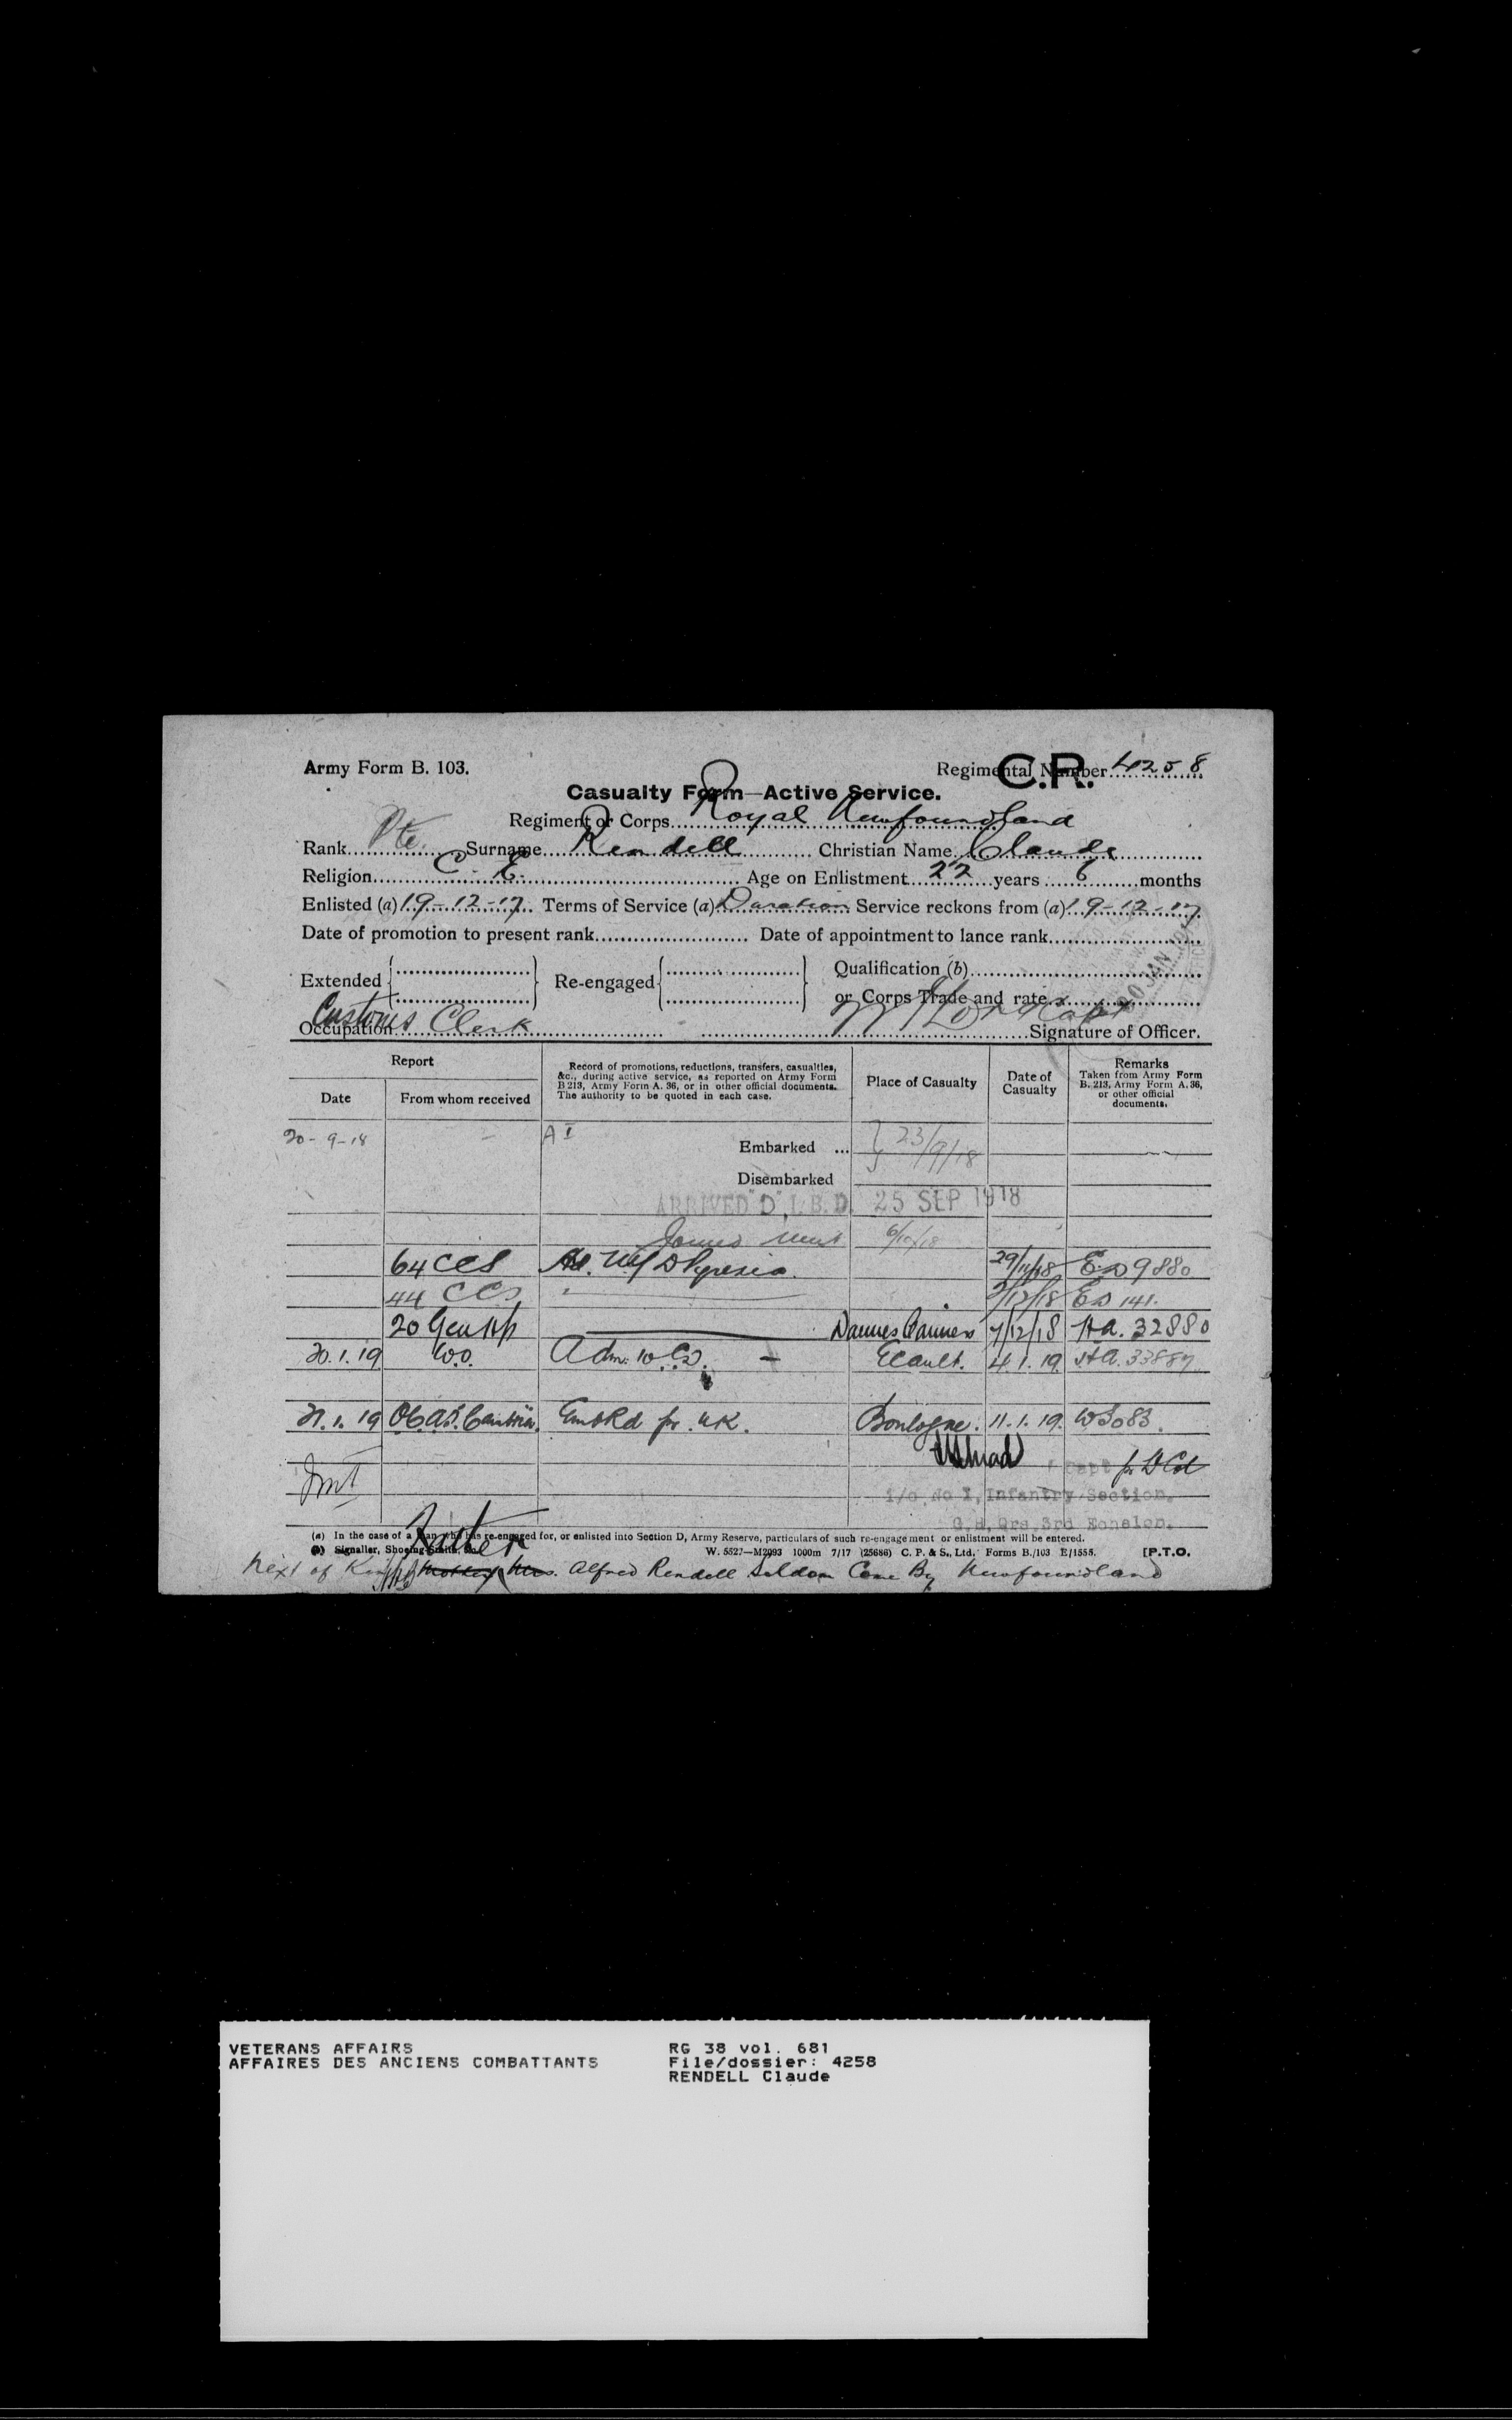 Army Form B. 103. Regimental Number 4258
C.R.
Casualty Form—Active Service.
Regiment or Corps Royal Newfoundland
Rank Pte. Surname Rendell Christian Name Claude
Religion C. E. Age on Enlistment 22 years 6 months
Enlisted (a) 19-12-17. Terms of Service (a) Duration Service reckons from (a) 19-12-17.
Date of promotion to present rank Date of appointment to lance rank
Extended Re-engaged Qualification (b)
or Corps Trade and rate
Occupation Customs Clerk Signature of Officer.
Report
Date From whom received
Record of promotions, reductions, transfers, casualties, &c., during active service, as reported on Army Form B 213, Army Form A. 36, or in other official documents. The authority to be quoted in each case.
Place of Casualty
Date of Casualty
Remarks Taken from Army Form B. 213, Army Form A. 36, or other official documents.
20-9-18 A I Embarked ... 23/9/18
Disembarked
ARRIVED "D", I.B.D. 25 SEP 1918
Joined Unit 6/10/18
64 CCS 29/11/18 ED 9880
44 CCS 2/12/18 ED 141.
20 Gen Hp Dannes Camiers 7/12/18 HA. 32880
20.1.19 W.O. Adm. 10 CD. — Ecault. 4.1.19. HA. 33887
21.1.19 Embkd for UK. Boulogne. 11.1.19. W3083.
Capt for Lt Col
i/c No 1, Infantry Section.
G.H.Qrs, 3rd Echelon.
(a) In the case of a man who has re-engaged for, or enlisted into Section D, Army Reserve, particulars of such re-engagement or enlistment will be entered.
(b) Signaller, Shoeing-Smith, &c. W. 5527—M2093 1000m 7/17 (25686) C. P. & S., Ltd. Forms B./103 E/1555. [P.T.O.
Father
Next of Kin Mother Mrs. Alfred Rendell Seldom Come By Newfoundland
VETERANS AFFAIRS RG 38 vol. 681
AFFAIRES DES ANCIENS COMBATTANTS File/dossier: 4258
RENDELL Claude